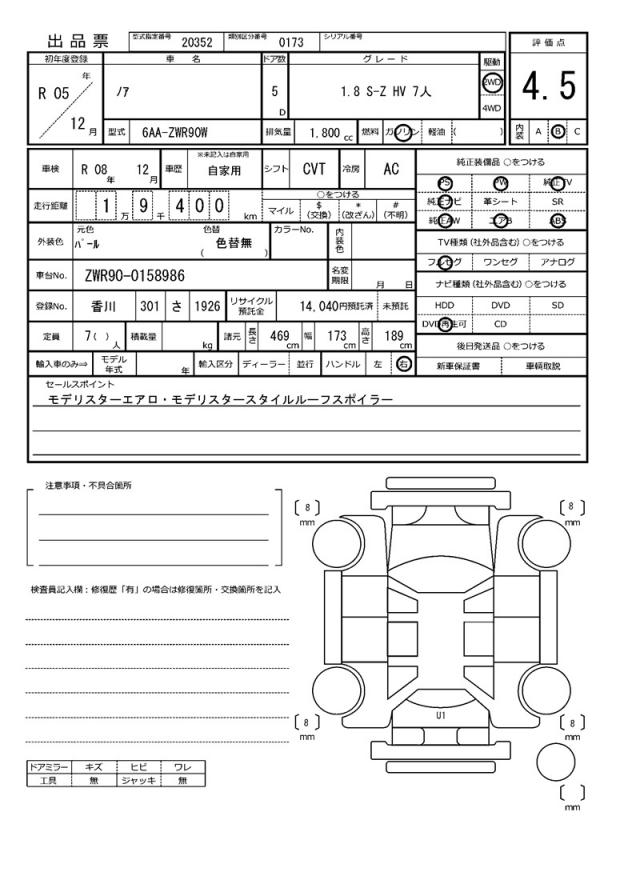 出品票 型式指定番号 20352 類別区分番号 0173 シリアル番号
評価点
4.5
初年度登録 車名 ドア数 グレード 駆動
R 05 年 12 月 ﾉｱ 5 D 1.8 S-Z HV 7人 2WD 4WD
型式 6AA-ZWR90W 排気量 1.800 cc 燃料 ガソリン 軽油 ( ) 内装 A B C
車検 R 08 年 12 月 車歴 ※未記入は自家用 自家用 シフト CVT 冷房 AC
走行距離 1 万 9 千 4 0 0 km ○をつける マイル $ (交換) * (改ざん) # (不明)
外装色 元色 ﾊﾟｰﾙ 色替 色替無 ( ) カラーNo. 内装色
車台No. ZWR90-0158986 名変期限 月 日
登録No. 香川 301 さ 1926 リサイクル預託金 14,040円預託済 未預託
定員 7( ) 人 積載量 kg 諸元 長さ 469 cm 幅 173 cm 高さ 189 cm
輸入車のみ⇒ モデル年式 年 輸入区分 ディーラー 並行 ハンドル 左 右
純正装備品 ○をつける
PS PW 純正TV
純正ナビ 革シート SR
純正AW エアB ABS
TV種類 (社外品含む) ○をつける
フルセグ ワンセグ アナログ
ナビ種類 (社外品含む) ○をつける
HDD DVD SD
DVD再生可 CD
後日発送品 ○をつける
新車保証書 車輌取説
セールスポイント
モデリスターエアロ・モデリスタースタイルルーフスポイラー
注意事項・不具合箇所
検査員記入欄：修復歴「有」の場合は修復箇所・交換箇所を記入
ドアミラー キズ ヒビ ワレ
工具 無 ジャッキ 無
8 mm
8 mm
U1
8 mm
8 mm
mm